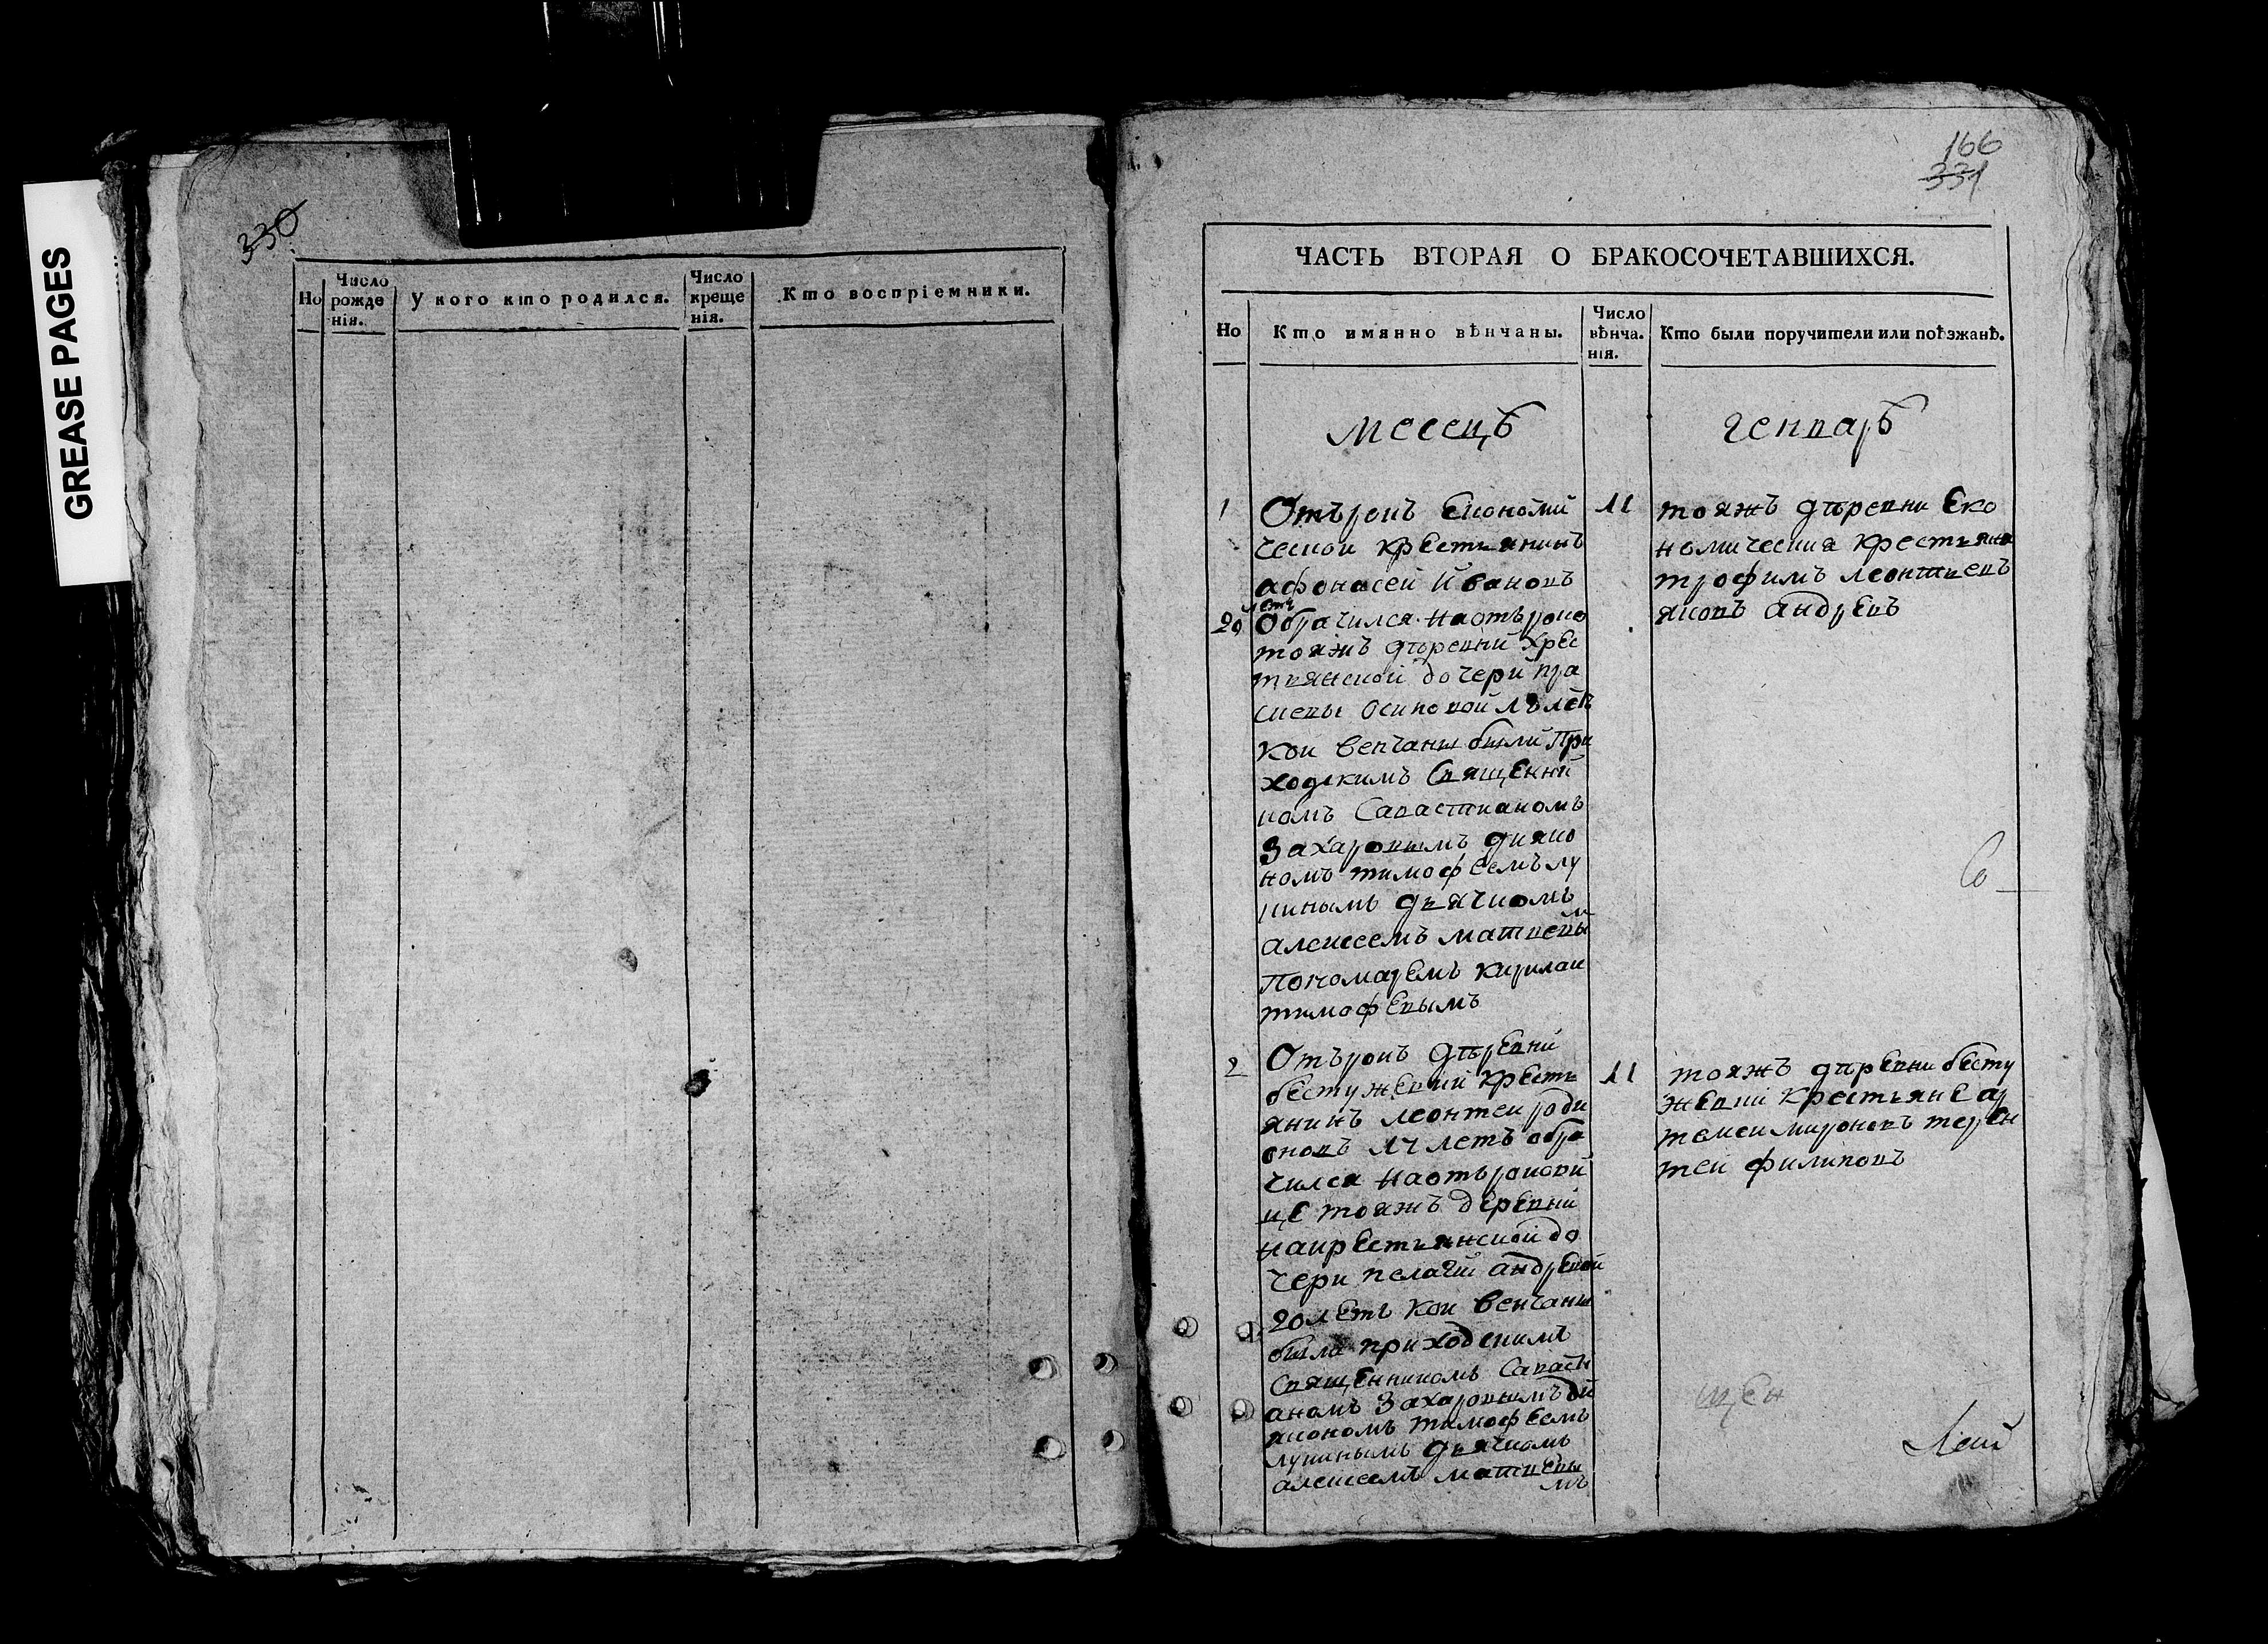 GREASE PAGES
330
Но
Число рожде нія.
У кого кто родился.
Число креще нія.
Кто воспріемники.
166
331
ЧАСТЬ ВТОРАЯ О БРАКОСОЧЕТАВШИХСЯ.
Но
Кто имянно вѣнчаны.
Число вѣнча. нія.
Кто были поручители или поѣзжанѣ.
месецъ
генварь
1
Отърокъ Економи
ческои крестьянинъ
афонасеи Ивановъ
летъ
20 Обрачился наотъроко
тояжъ дѣревни хрес
тьянскои дочери пра
сковы осиповой
кои венчаны были При
ходскимъ Священни
комъ Савастианомъ
Захаровымъ диако
номъ тимофеемъ лу
киным дьячкомъ
алексеемъ матвевы
м
Пономаремъ кирилаи
тимофевымъ
11
тояжъ дѣревни Еко
номическия крестьяня
трофимъ леонтьевъ
яковъ андревъ
2
Отърокъ дѣревни
бестужевки кресть
янинъ леонтеи роди
оновъ 17 летъ обра
чился наотърокови
це тояжъ деревни
накрестьянской до
чери пелагии андревой
20 летъ кои венчаны
были приходскимъ
Священникомъ Саваст
аномъ Захаровымъ ди
якономъ тимофеемъ
лукинымъ дьячкомъ
алексеемъ матвевы
мъ
11
тояжъ дѣревни бесту
жевки крестьяне ар
темеи мироновъ терен
теи филиповъ
щен